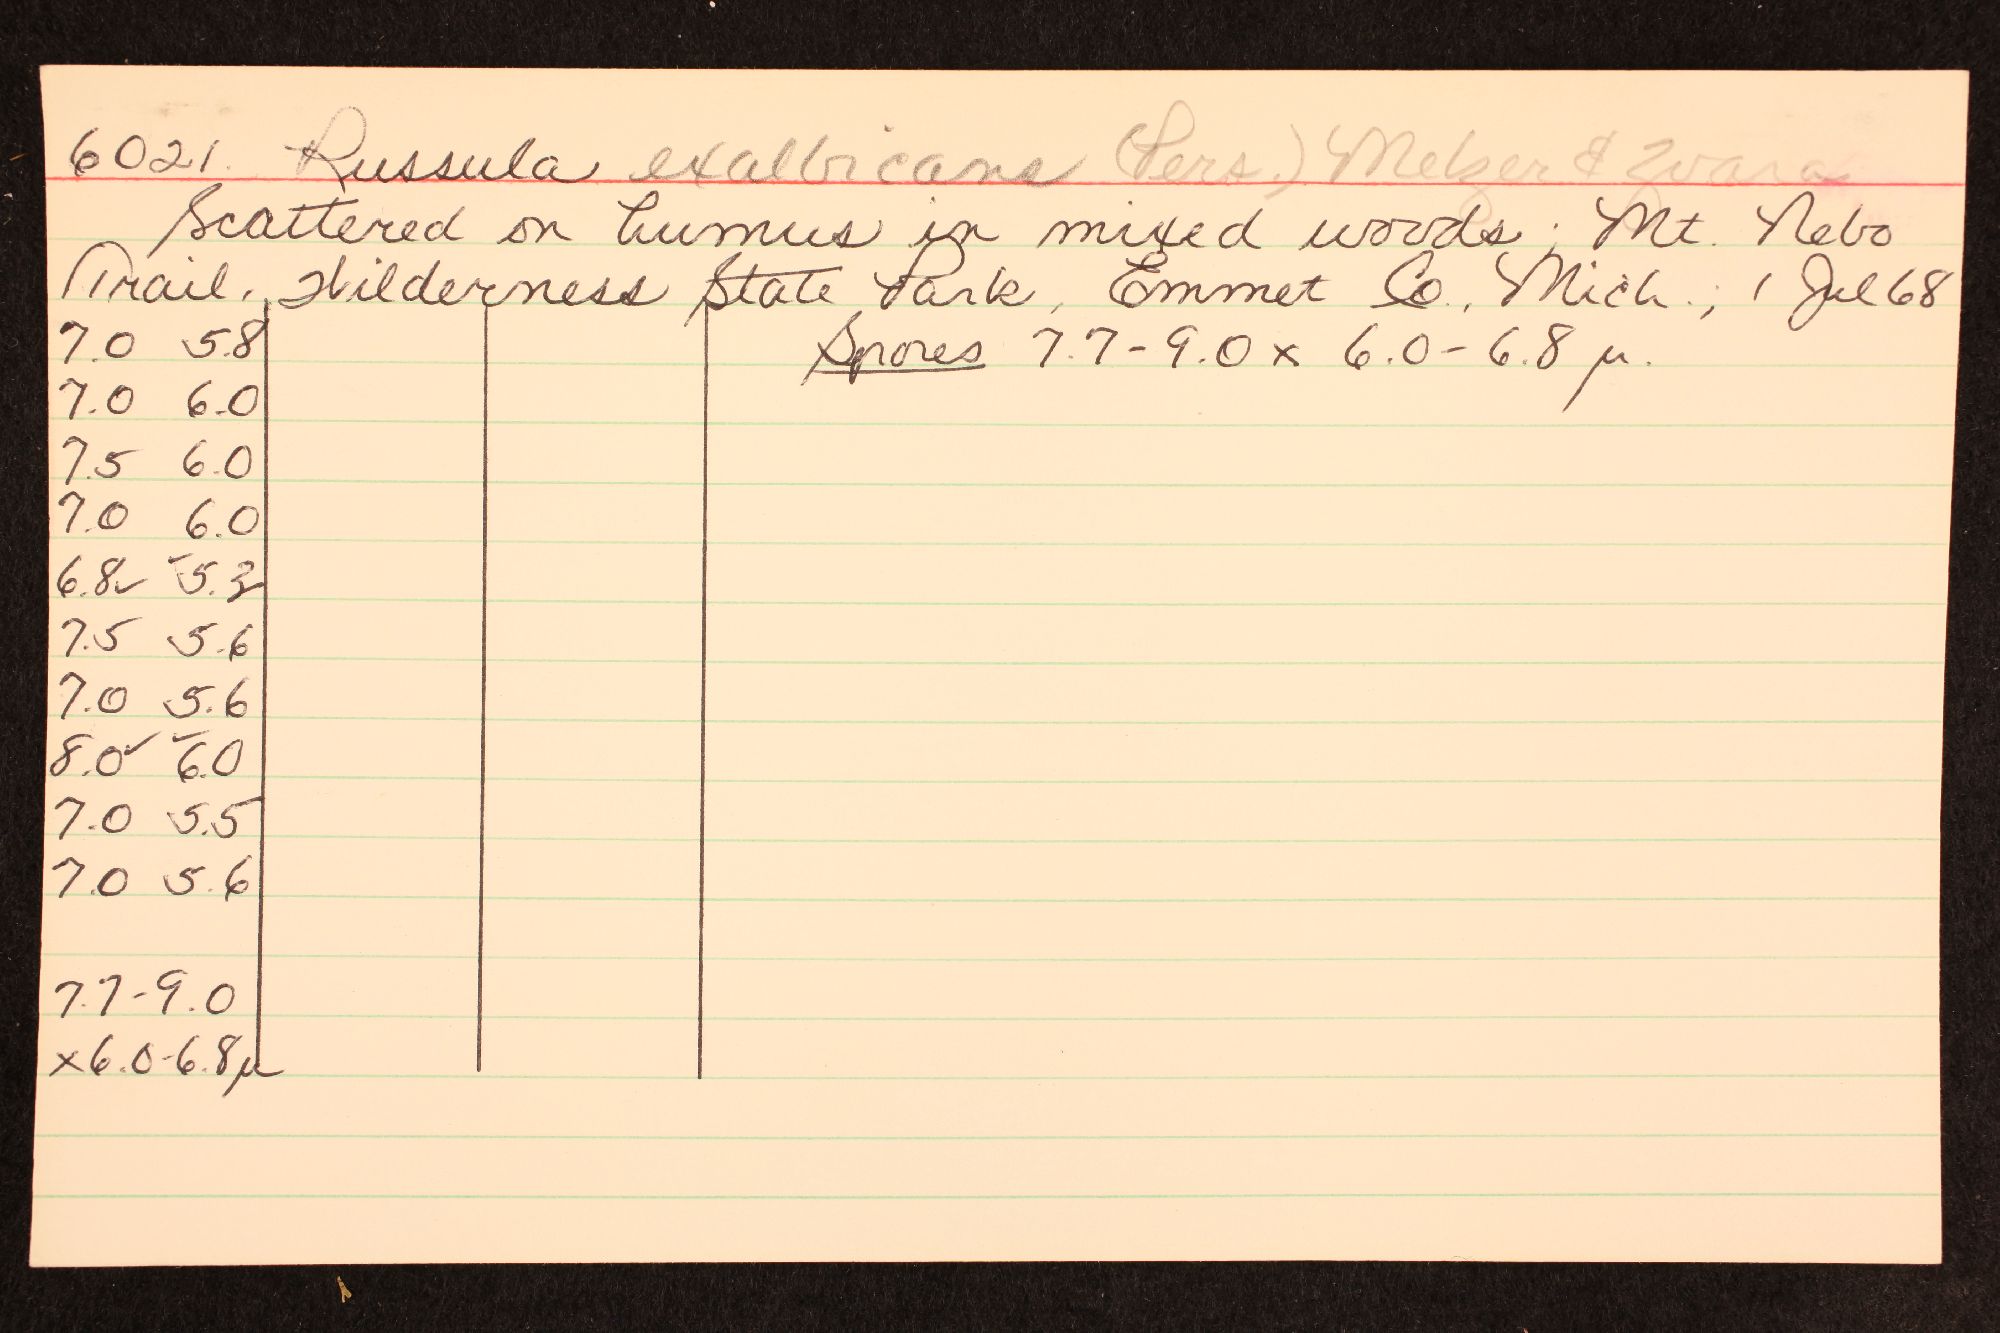 6021. Russula exalbicans (Pers.) Melzer & Zvara
Scattered on humus in mixed woods; Mt. Nebo
Trail, Wilderness State Park, Emmet Co., Mich.; 1 Jul 68
7.0 5.8 Spores 7.7-9.0 x 6.0-6.8 µ.
7.0 6.0
7.5 6.0
7.0 6.0
6.8✓ ✓5.3
7.5 5.6
7.0 5.6
8.0✓ ✓6.0
7.0 5.5
7.0 5.6
7.7-9.0
x6.0-6.8µ